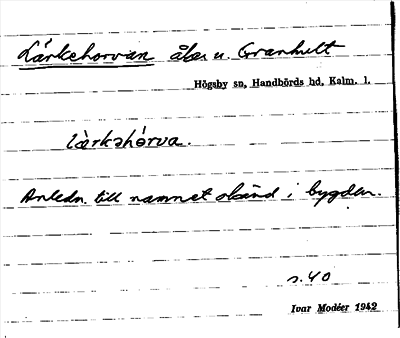 Lärkehorvan åker u. Granhult
Högsby sn, Handbörds hd, Kalm. l.
lὰrkəhórva.
Anledn. till namnet okänd i bygden.
s. 40
Ivar Modéer 1942